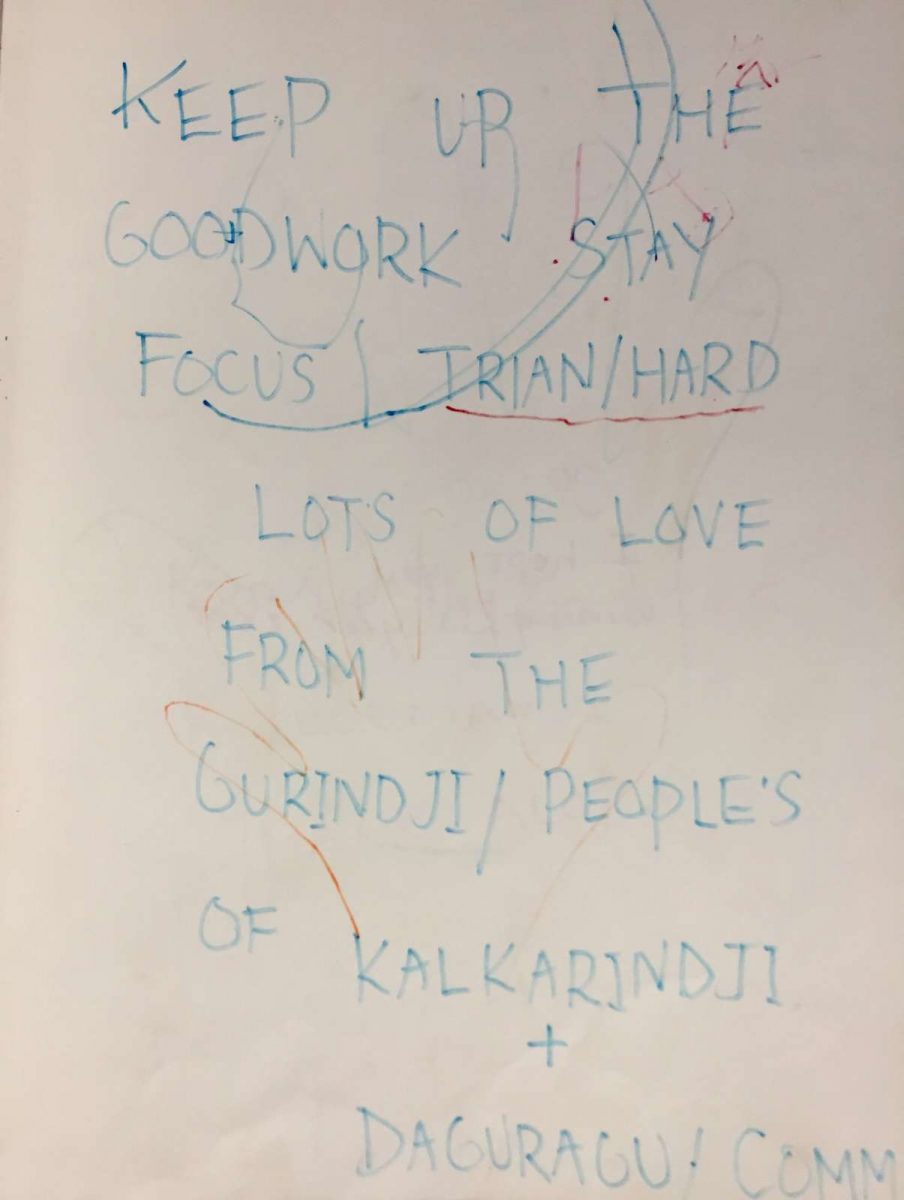 KEEP UP THE
GOODWORK STAY
FOCUS / TRIAN/HARD
LOTS OF LOVE
FROM THE
GURINDJI/ PEOPLE'S
OF
KALKARINDJI
+
DAGURAGU/ COMM